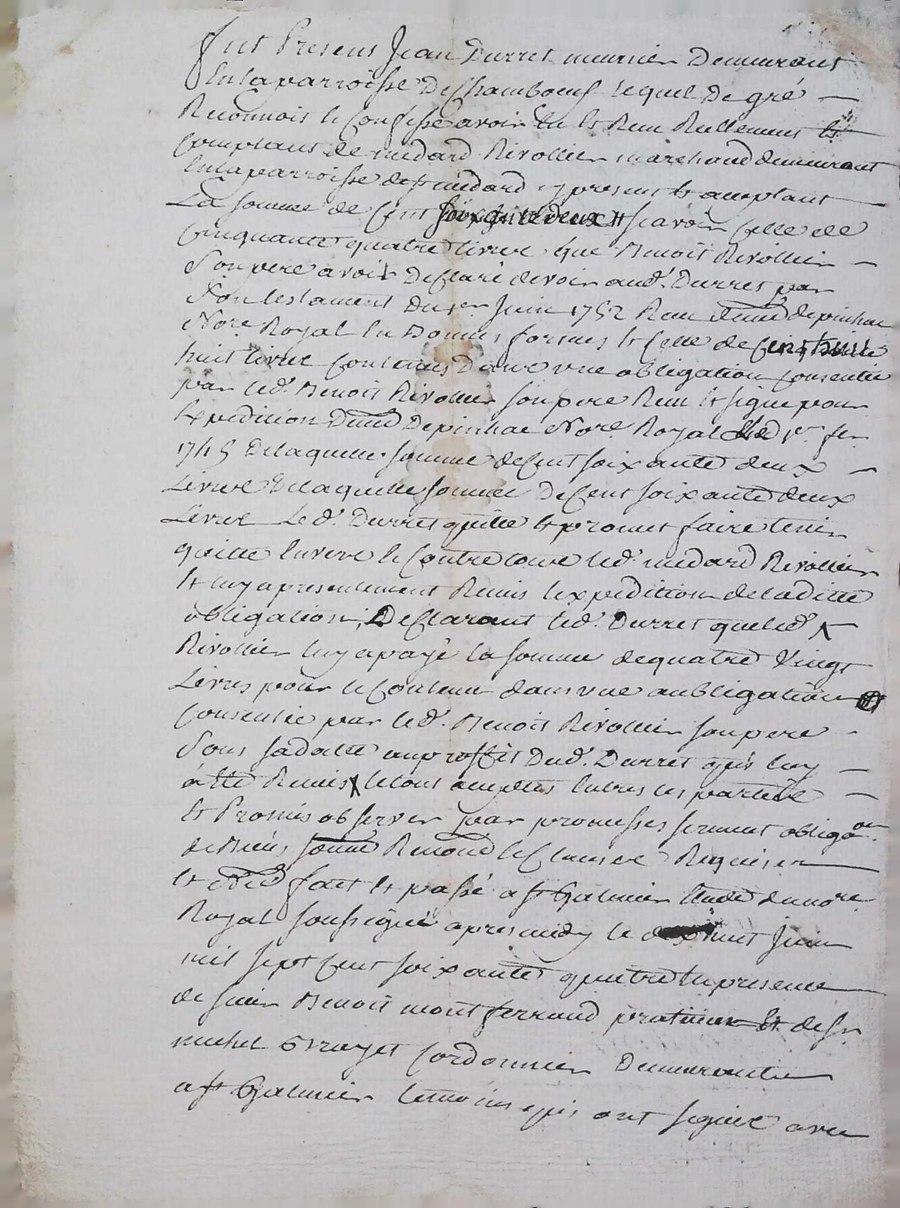 fut Present Jean Durret meunier Demeurant
En la parroisse De Chambœuf lequel De gré —
Reconnois et Confesse avoir Eu et Reçu Reellement et
comptant de médard Rivollier marchand demeurant
En la parroisse de St médard cy present et acceptant
La somme de Cent soixante deux ₶ scavoir Celle de
Cinquante quatre livres que Benoit Rivollier —
Son pere avoit Declaré devoir aud. Durret par
Son testament Du 1er Juin 1752 Reçu depinhac
Nore Royal En Bonnes formes et Celle de Cent huit
huit livres Contenus Dans une obligation consentie
par led. Benoit Rivollier son pere Reçu et signé pour
Expedition Dud Depinhac Nore Royal
1745 De laquelle somme de Cent soixante deux —
Livres De laquelle somme De Cent soixante deux
Livres Led. Durret quitte et promet faire tenir
quitte Envers et Contre tous led. médard Rivollier
Et luy a presentement Remis l'expedition de laditte
obligation, Declarant led. Durret que led.
Rivollier luy a payé la somme de quatre Vingt
Livres pour le Contenu dans une aubligation
Consentie par led. Benoit Rivollier son pere -
Sous sa datte au proffit Dud. Durret qu'il luy —
à Eté Remis le tout accepté Entres les parties —
Et Promis observer par promesses serment obligaon
de Biens soumis Renond et Clauses Requises
Et fait et passé a St Galmier Etude du nore
Royal soussigné apres midy le huit Juin
mil sept cent soixante quatre En presence
de sieur Benoit montferrand praticien et de sr
michel Grayet Cordonnier Demeurants
a St Galmier temoins qui ont signé avec